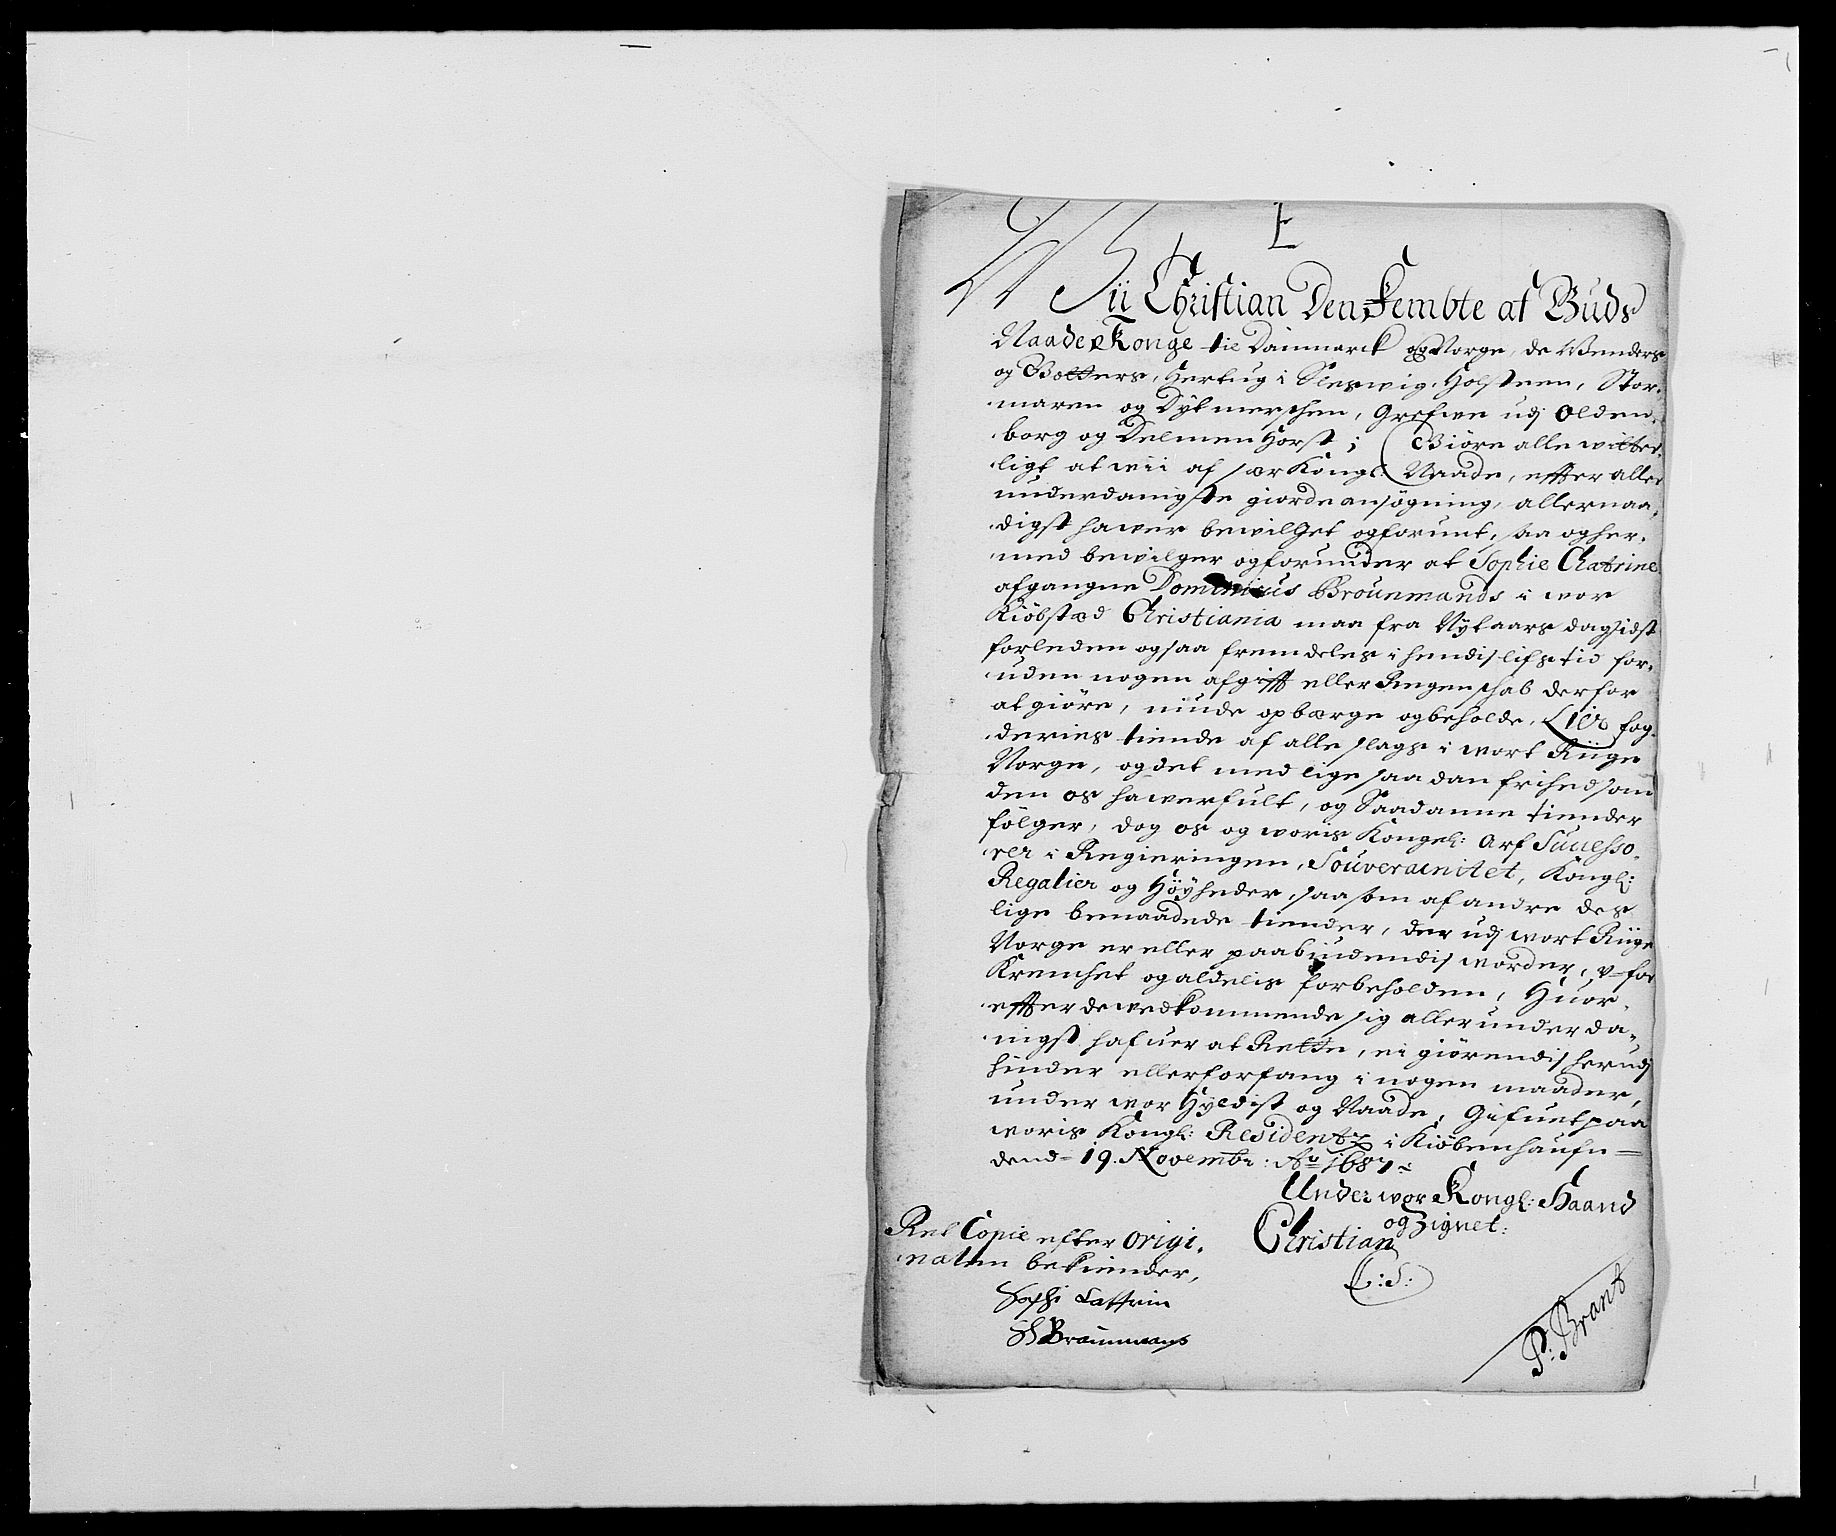 E
Wii Christian Den Fembte af Guds
Naade Konge til Danmarck og Norge, de Wenders
og Gotters, Hertug i Sleswig, Holsteen, Stor-
maren og Dytmerschen, Grefwe udj Olden-
borg og Delmenhorst; Giöre alle witter-
ligt at wii af sær Kongl Naade, effter aller
underdanigste giorde ansögning, allernaa-
digst hawer bewilget og forunt, saa og her-
med bewilger og forunder at Sophie Chatrine
afgangne Dominicus Brounmands i wor
Kiöbstæd Christiania maa fra Nytaars dag sidst
forleden og saa fremdeles i hendis lifs tid for-
uden nogen afgifft eller Regenschab derfor
at giöre, niude opbærge og beholde, Lier fog-
deries tiende af alle slags i wort Riige
Norge, og det med lige saadan frihed som
den os hawer fult, og Saadanne tiender
fölger, dog os og woris Kongel: Arf Successo-
rer i Regieringen, Souverainitet, Kongl:
Regalier og Höyheder, saa som af andre des
lige benaadede tiender, der udj wort Riige
Norge er eller paabiudendis worder, v-for
Krenchet og aldelis forbeholden, Huor-
effter de wedkommende sig allerunderda-
nigst hafuer at Rette, ei giörendis herudj
hinder eller forfang i nogen maader,
under wor Hyldist og Naade, Gifuet paa
woris Kongl: Residentz i Kiöbenhaufn
dend 19. Novembr: Ao 1687
Under wor Kongl: Haand
og Zignet:
Christian
L: S:
Ret Copie efter Origi-
nalen bekiender,
Sophi Cattrin
Sl Braunmans
P: Brant